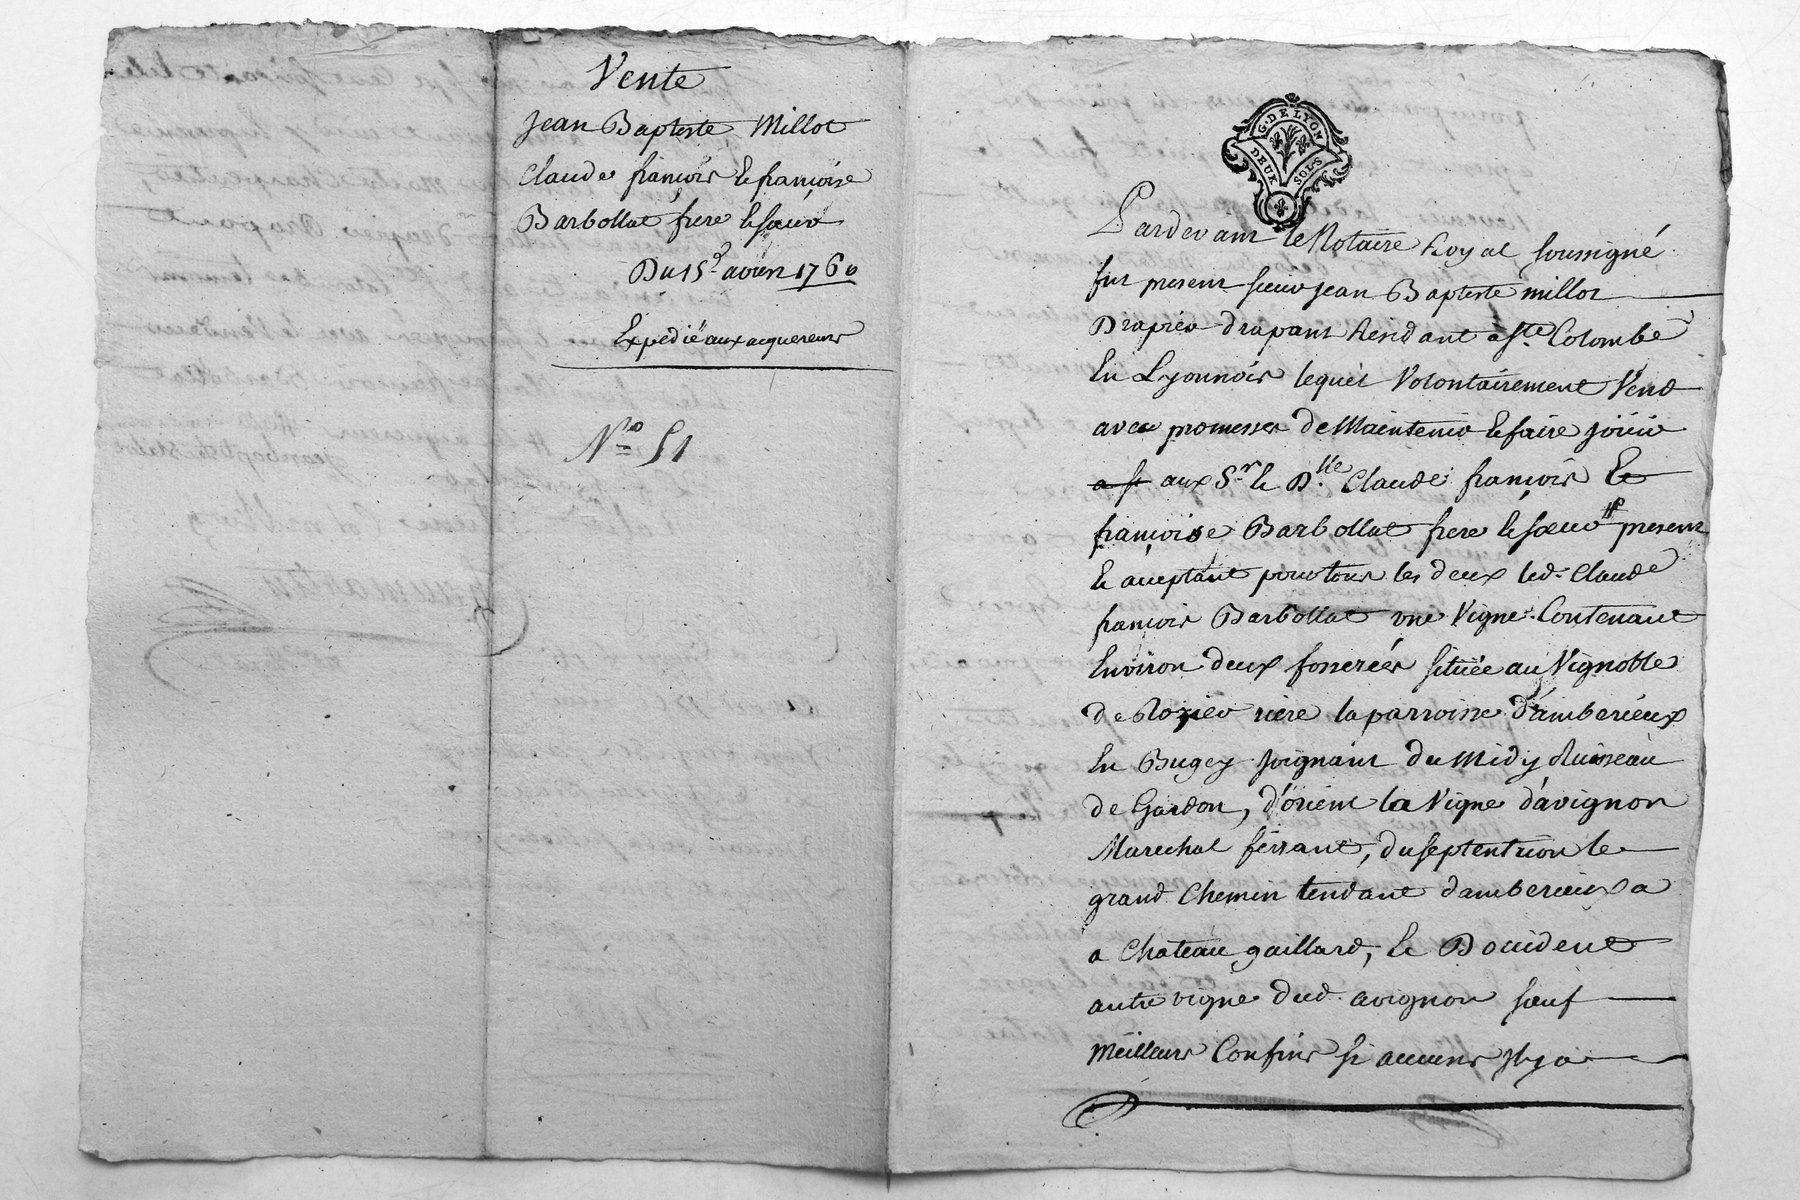 Vente
Jean Baptiste Millot
Claude françois & françoise
Barbollat frere & sœur
Du 15e avril 1760
Expedié aux acquereurs
No 51
G. DE LYON
DEUX SOLS
Pardevant le Notaire Royal soussigné
fut present sieur jean Baptiste millot
Drapier drapant Residant a Ste. Colombe
En Lyonnois lequel Volontairement Vend
avec promesses de Maintenir & faire jouir
a st aux Sr. & Dlle. Claude françois Et
françoise Barbollat frere & sœur # present
& aceptant pour tous les deux led. Claude
françois Barbollat une Vigne Contenant
Environ deux fosserées située au Vignoble
de rière la parroisse d'amberieux
En Bugey joignant du Midy Ruisseau
de Gardon, d'orient la Vigne d'avignon
Marechal ferrant, du septentrion le
grand Chemin tendant d'amberieux a
a Chateau gaillard, & D'occident
autre vigne dud. avignon sauf
Meilleurs Confins si aucuns Il y a